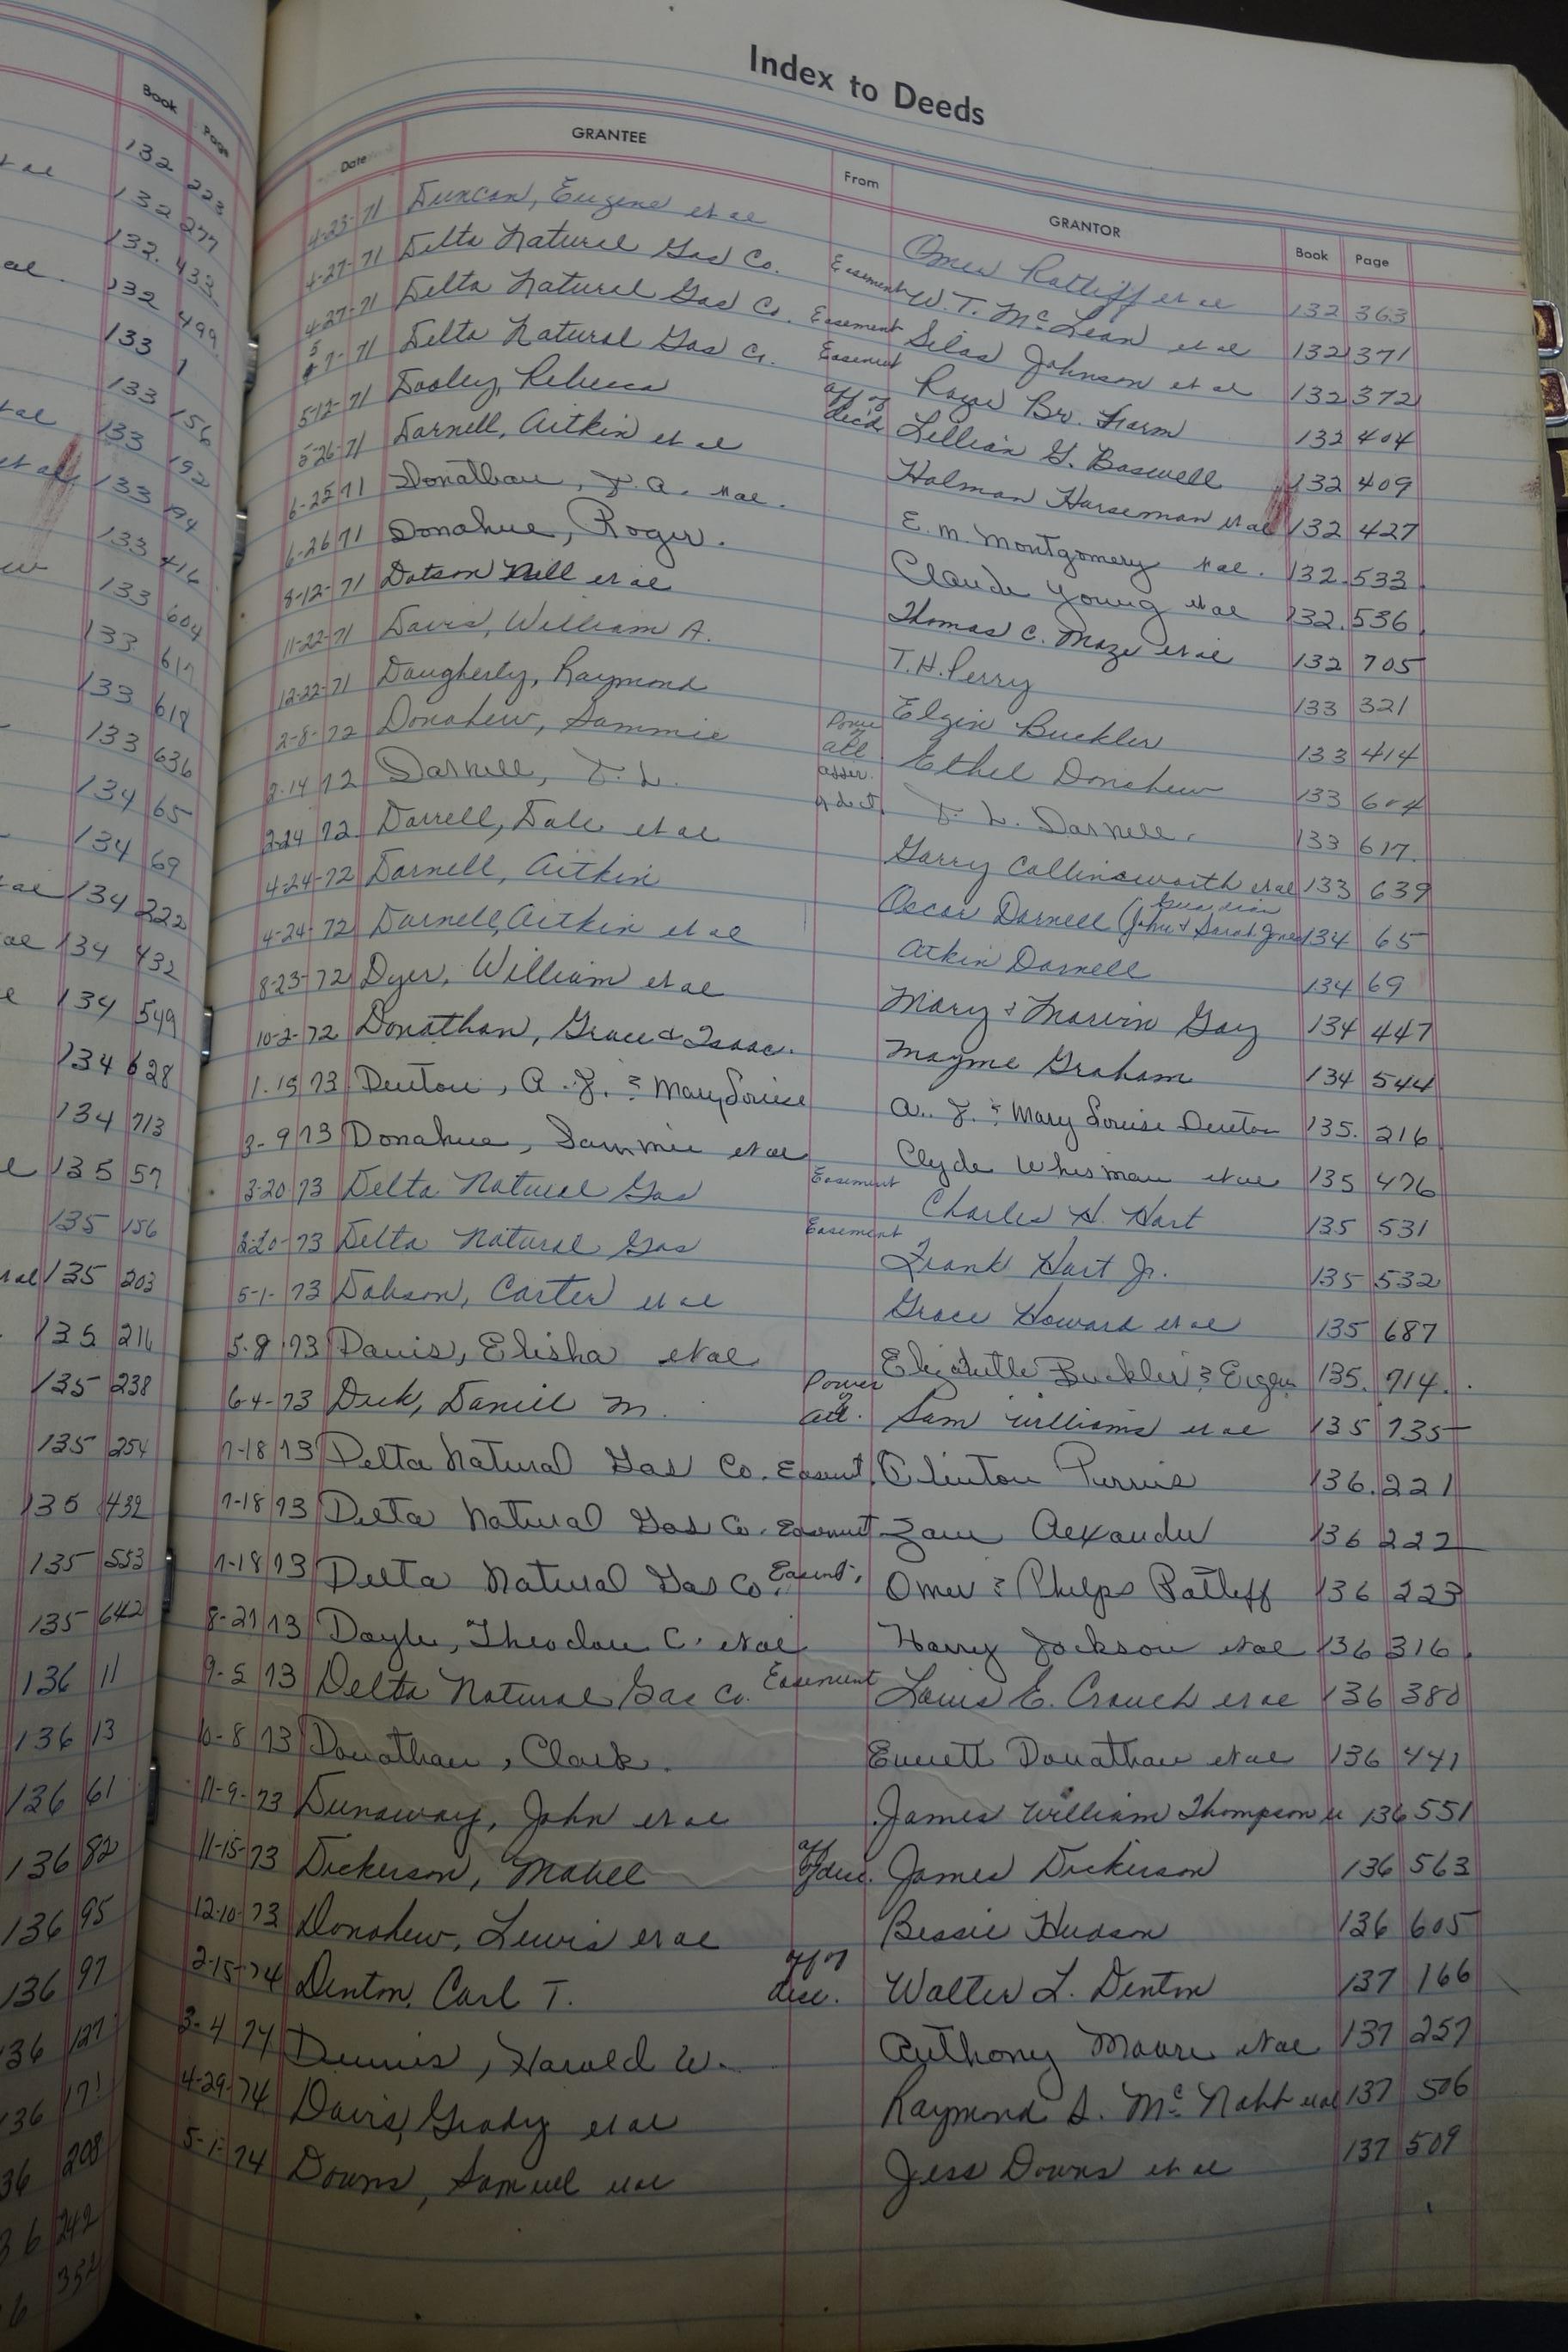 Book Page
132 223
132 277
132. 433
132 499
133 1
133 156
133 192
133 194
133 416
133 604
133 617
133 618
133 636
134 65
134 69
134 222
134 432
134 549
134 628
134 713
135 57
135 156
135 203
135 216
135 238
135 254
135 439
135 553
135 642
136 11
136 13
136 61
136 82
136 95
136 97
36 127
36 171
36 208
36 242
6 352
Index to Deeds
Date GRANTEE From GRANTOR Book Page
4-23-71 Duncan, Eugene et al Omer Ratliff et al 132 363
4-27-71 Delta Natural Gas Co. Easement W. T. McLean et al 132 371
4-27-71 Delta Natural Gas Co. Easement Silas Johnson et al 132 372
5-7-71 Delta Natural Gas Co. Easement Br. Farm 132 404
5-12-71 Dooley, Rebecca aff of dec'd Lillian G. Baswell 132 409
5-26-71 Darnell, Aitkin et al Holman Harseman et al 132 427
6-25 71 Donathan, J. A. et al. E. M. Montgomery et al. 132. 533.
6-26 71 Donahue, Roger. Claude Young et al 132. 536.
8-12-71 Dotson Nell et al Thomas C. Maze et al 132 705
11-22-71 Davis, William A. T. H. Perry 133 321
12-22-71 Daugherty, Raymond Elgin Buckler 133 414
2-8-72 Donahew, Sammie Power of att. Ethel Donahew 133 604
2-14 72 Darnell, T. L. of dect. T. L. Darnell. 133 617.
2-24 72 Darrell, Dale et al Garry Collinsworth et al 133 639
4-24-72 Darnell, Aitkin Oscar Darnell (Guardian John & Sarah Jones 134 65
4-24-72 Darnell, Aitkin et al Atkin Darnell 134 69
8-23-72 Dyer, William et al Mary & Marvin Gay 134 447
10-2-72 Donathan, Grace & Isaac. Mayme Graham 134 544
1.15 73 Denton, A. J. & Mary Louise A. J. & Mary Louise Denton 135. 216
3-9 73 Donahue, Sammie et al Clyde Whisman et al 135 476
3-20 73 Delta Natural Gas Easement Charles H. Hart 135 531
3-20-73 Delta Natural Gas Easement Frank Hart Jr. 135 532
5-1-73 Dobson, Carter et al Grace Howard et al 135 687
5-8 73 Davis, Elisha et al Elizabeth Buckler & 135. 714.
6-4-73 Deck, Daniel M. Power of att. Sam Williams et al 135 735
7-18 73 Delta Natural Gas Co. Easmt. Clinton Purvis 136. 221
7-18 73 Delta Natural Gas Co. Easmnt Zam Alexander 136 222
7-18 73 Delta Natural Gas Co. Easmt. Omer & Phelps Ratliff 136 223
8-27 73 Doyle, Theodore C. et al Harry Jackson et al 136 316.
9-5 73 Delta Natural Gas Co. Easement Louis E. Crouch et al 136 380
10-8 73 Donathan, Clark. Everett Donathan et al 136 441
11-9-73 Dunaway, John et al James William Thompson 136 551
11-15-73 Dickerson, Mabel aff of dec. James Dickerson 136 563
12-10-73 Donahew, Lewis et al Bessie Hudson 136 605
2-15-74 Denton, Carl T. aff of dec. Walter L. Denton 137 166
3-4 74 Dennis, Harold W. Anthony Moore et al 137 257
4-29-74 Davis, Grady et al Raymond S. McNabb et al 137 506
5-1-74 Downs, Samuel et al Jess Downs et al 137 509